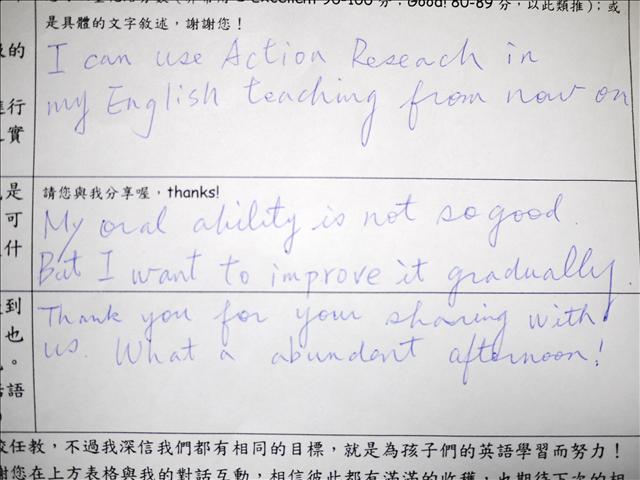 Excellent 90-100 分；Good! 80-89 分，以此類推)；或
是具體的文字敘述，謝謝您！
的
I can use Action Reseach in
行
my English teaching from now on
實
是
請您與我分享喔，thanks!
可
My oral ability is not so good.
什
But I want to improve it gradually.
到
Thank you for your sharing with
也
us. What a abundant afternoon!
。
話語
)
校任教，不過我深信我們都有相同的目標，就是為孩子們的英語學習而努力！
謝您在上方表格與我的對話互動，相信彼此都有滿滿的收穫，也期待下次的相